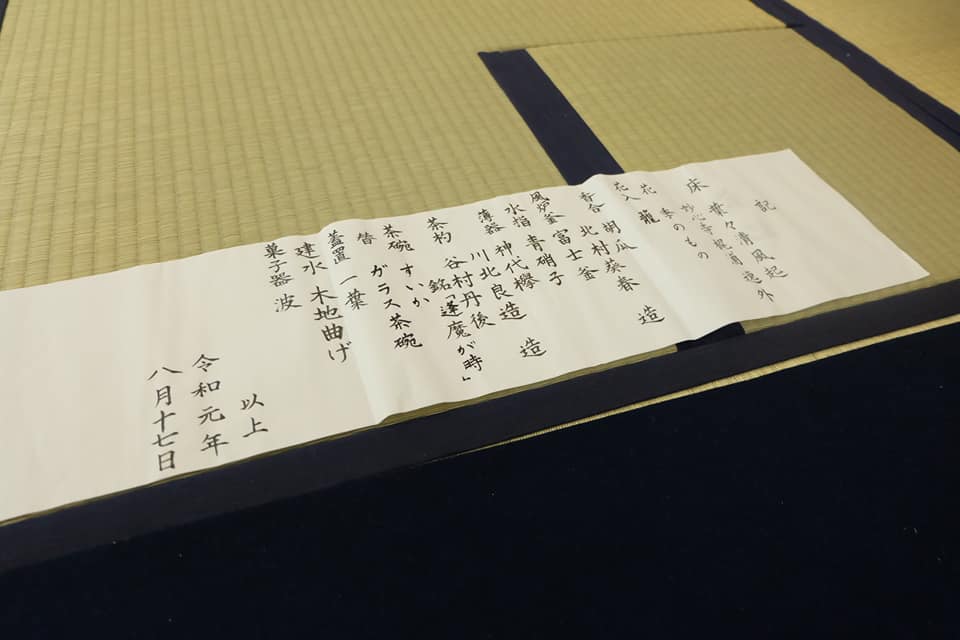 記
床 葉々清風起
妙心寺 梶浦逸外
花 季のもの
花入 籠
香合 胡瓜
北村葵春 造
風炉釜 富士釜
水指 青硝子
薄器 神代欅
川北良造 造
茶杓 谷村丹後
銘「逢魔が時」
茶碗 すいか
替 ガラス茶碗
蓋置 一葉
建水 木地曲げ
菓子器 波
以上
令和元年
八月十七日